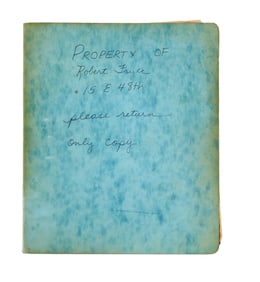 PROPERTY OF
Robert
15 E 48th
please return
only copy